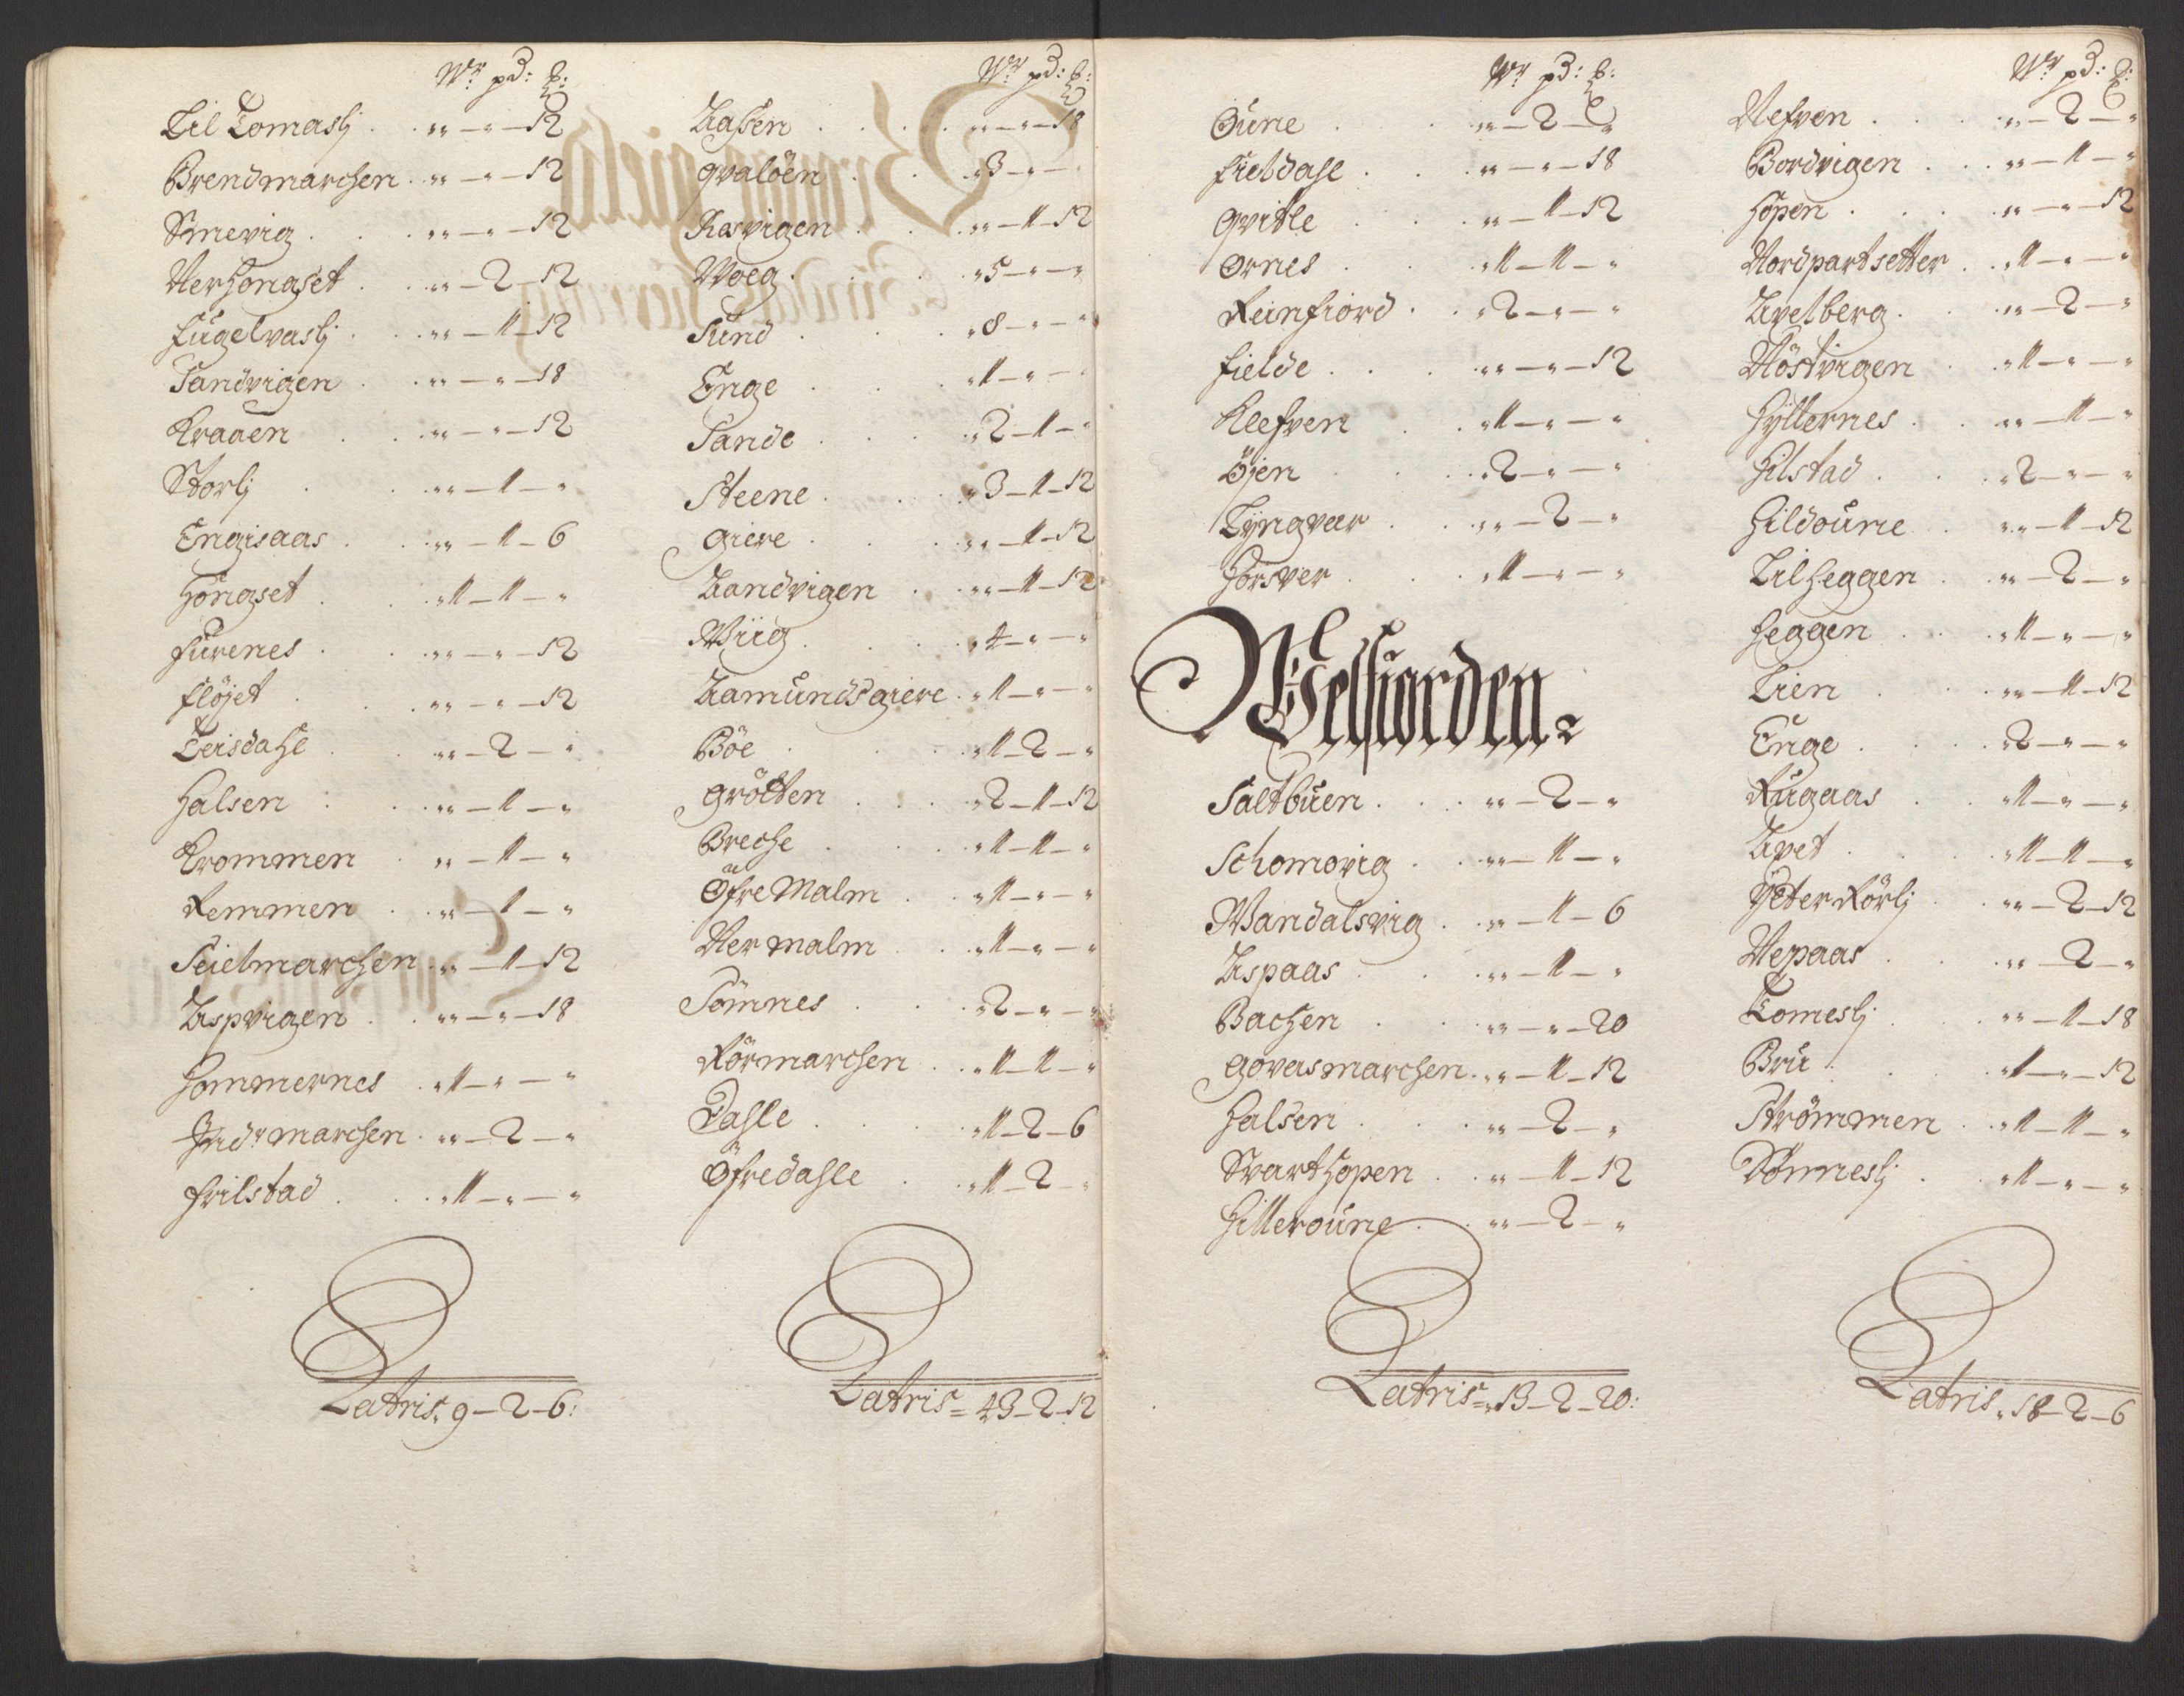 Wr pd: lb:
Til Tomaslj . . „ — „ — 12
Brendmarchen . . „ — „ — 12
Smevig . . „ — „ — 12
Nerhongset . . „ — 2 — 12
Fugelvaslj . . „ — 1 — 12
Sandvigen . . „ — „ — 18
Kraaen . . „ — „ — 12
Storlj . . „ — 1 — „
Engisaas . . „ — 1 — 6
Hongset . . 1 — 1 — „
Furenes . . „ — „ — 12
Fløjet . . „ — „ — 12
Teisdahl . . „ — 2 — „
Halsen . . „ — 1 — „
Krommen . . „ — 1 — „
Remmen . . „ — 1 — „
Seielmarchen . . „ — 1 — 12
Aspvigen . . „ — „ — 18
Hommernes . . 1 — „ — „
Indr marchen . . „ — 2 — „
Frilstad . . 1 — „ — „
Latris. 9 — 2 — 6:
Wr pd: lb:
Aasen . . „ — „ — 18
Qvaløen . . 3 — „ — „
Røsvigen . . „ — 1 — 12
Woeg . . 5 — „ — „
Sund . . 8 — „ — „
Enge . . 1 — „ — „
Sande . . 2 — 1 — „
Steene . . 3 — 1 — 12
Giere . . „ — 1 — 12
Aandvigen . . „ — 1 — 12
Wiig . . 4 — „ — „
Aamundsgiere . . 1 — „ — „
Bøe . . 1 — 2 — „
Grøtten . . 2 — 1 — 12
Breche . . 1 — 1 — „
Øfre Malm . . 1 — „ — „
Ner malm . . 1 — „ — „
Sømnes . . 2 — „ — „
Rørmarchen . . 1 — 1 — „
Dahle . . 1 — 2 — 6
Øfredahle . . 1 — 2 — „
Latris = 43 — 2 — 12
Wr pd: lb:
Oune . . „ — 2 — „
Fieldahl . . „ — „ — 18
Qvitle . . „ — 1 — 12
Ornes . . 1 — 1 — „
Reinfiord . . 2 — „ — „
Fielde . . „ — „ — 12
Klefven . . 1 — „ — „
Øjen . . 2 — „ — „
Lyngvær . . „ — 2 — „
Horsver . . 1 — „ — „
Welfiorden.
Saltbuen . . „ — 2 — „
Schomovig . . „ — 1 — „
Wandalsvig . . „ — 1 — 6
Aspaas . . „ — 1 — „
Bachen . . „ — „ — 20
Govasmarchen . . „ — 1 — 12
Halsen . . „ — 2 — „
Svarthopen . . „ — 1 — 12
Hilleroune . . „ — 2 — „
Latris = 13 — 2 — 20:
Wr pd: lb:
Nefven . . „ — 2 — „
Bordvigen . . „ — 1 — „
Hopen . . „ — „ — 12
Nordpartsetter . . 1 — „ — „
Avelberg . . „ — 2 — „
Nøstvigen . . 1 — „ — „
Hyllernes . . „ — 1 — „
Hilstad . . 2 — „ — „
Hildoune . . „ — 1 — 12
Lilheggen . . „ — 2 — „
Heggen . . 1 — „ — „
Lien . . „ — 1 — 12
Enge . . 2 — „ — „
Rugaas . . 1 — „ — „
Avet . . 1 — 1 — „
Yeter Rørlj . . „ — 2 — 12
Nepaas . . „ — 2 — „
Tomeslj . . „ — 1 — 18
Bru . . 1 — „ — 12
Strømmen . . 1 — 1 — „
Sømneslj . . 1 — „ — „
Latris. 18 — 2 — 6